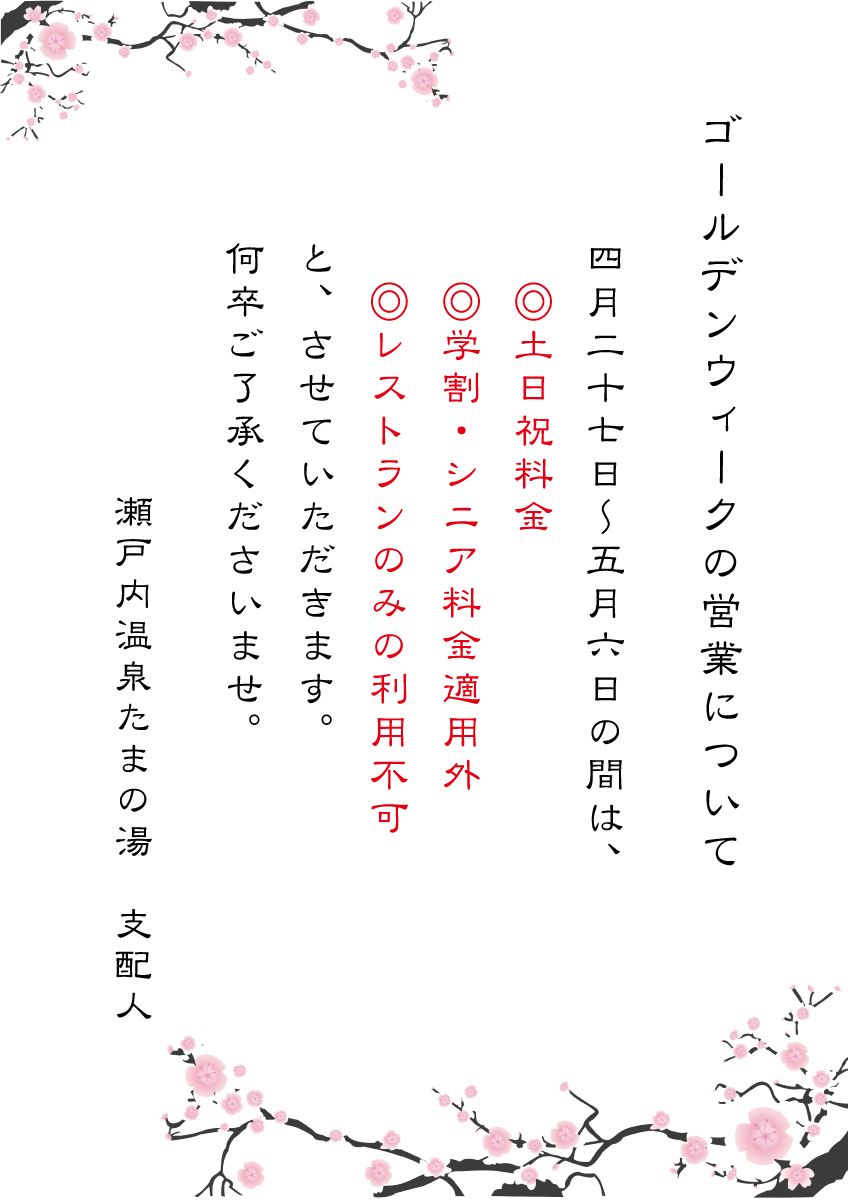 ゴールデンウィークの営業について
四月二十七日～五月六日の間は、
◎土日祝料金
◎学割・シニア料金適用外
◎レストランのみの利用不可
と、させていただきます。
何卒ご了承くださいませ。
瀬戸内温泉たまの湯　支配人